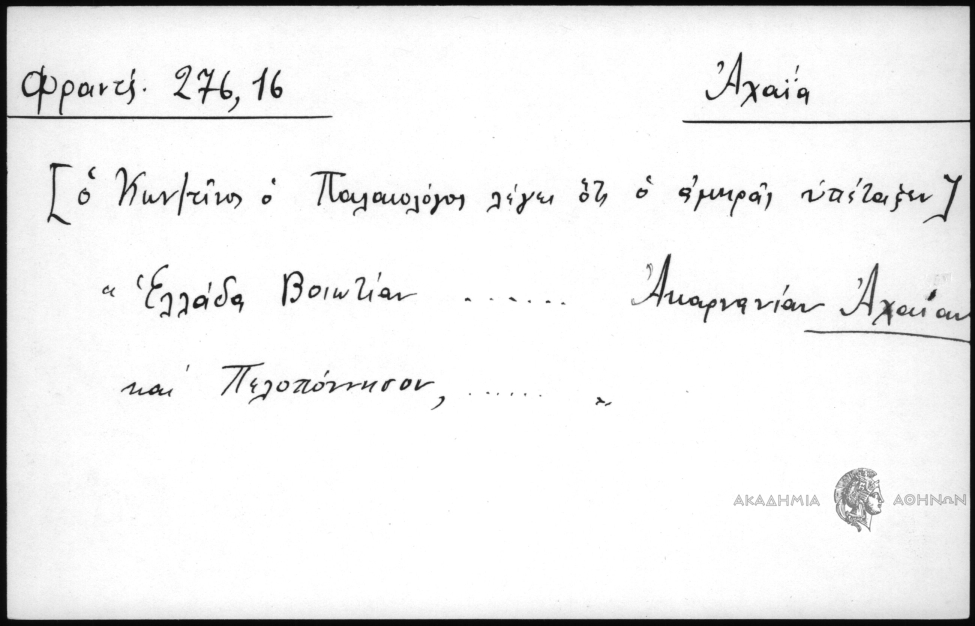 Φραντζ. 276,16 Ἀχαΐα
[ὁ Κων/τῖνος ὁ Παλαιολόγος λέγει ὅτι ὁ ἀμηρᾶς ὑπέταξεν]
“Ἑλλάδα Βοιωτίαν ...... Ἀκαρνανίαν Ἀχαΐαν
καὶ Πελοπόννησον, ...... „
ΑΚΑΔΗΜΙΑ ΑΘΗΝΩΝ